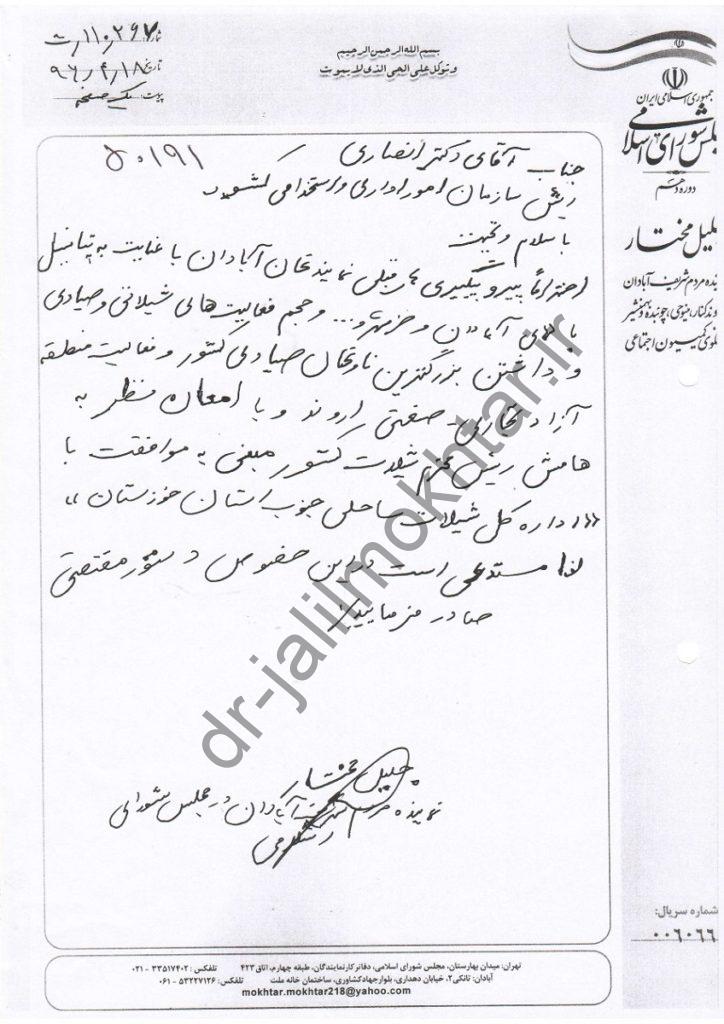 بسم الله الرحمن الرحیم
و توکل علی الحی الذی لایموت
شماره: ۱۱۰٫۲۶۷٫ش
تاریخ: ۹۶٫۴٫۱۸
پیوست: یک صفحه
جمهوری اسلامی ایران
مجلس شورای اسلامی
دوره دهم
جلیل مختار
ینده مردم شریف آبادان
وندکنار، مینوی، چوبنده و بهمنشیر
کمیسیون اجتماعی
۵۰۱۹۱
جناب آقای دکتر انصاری
رئیس سازمان امور اداری و استخدامی کشور
با سلام و تحیت
احتراماً پیرو پیگیری های قبلی نمایندگان آبادان با عنایت به پتانسیل
بالای آبادان و خرمشهر و... و حجم فعالیت های شیلاتی و صیادی
و داشتن بزرگترین ناوگان صیادی کشور و فعالیت منطقه
آزاد تجاری - صنعتی اروند و با امعان نظر به
هامش رئیس محترم شیلات کشور مبنی به موافقت با
«اداره کل شیلات ساحلی جنوب استان خوزستان»
لذا مستدعی است در این خصوص دستور مقتضی
صادر فرمایید
جلیل مختار
نماینده مردم آبادان در مجلس شورای
اسلامی
dr-jalilmokhtar.ir
شماره سریال:
۰۰۶۰۶۶
تهران: میدان بهارستان، مجلس شورای اسلامی، دفاتر کار نمایندگان، طبقه چهارم، اتاق ۴۲۳ تلفکس: ۳۳۵۱۷۴۰۲ - ۰۲۱
آبادان: تانکی ۲، خیابان دهداری، بلوار جهاد کشاورزی، ساختمان خانه ملت تلفکس: ۵۳۲۲۷۱۲۶ - ۰۶۱
mokhtar.mokhtar218@yahoo.com